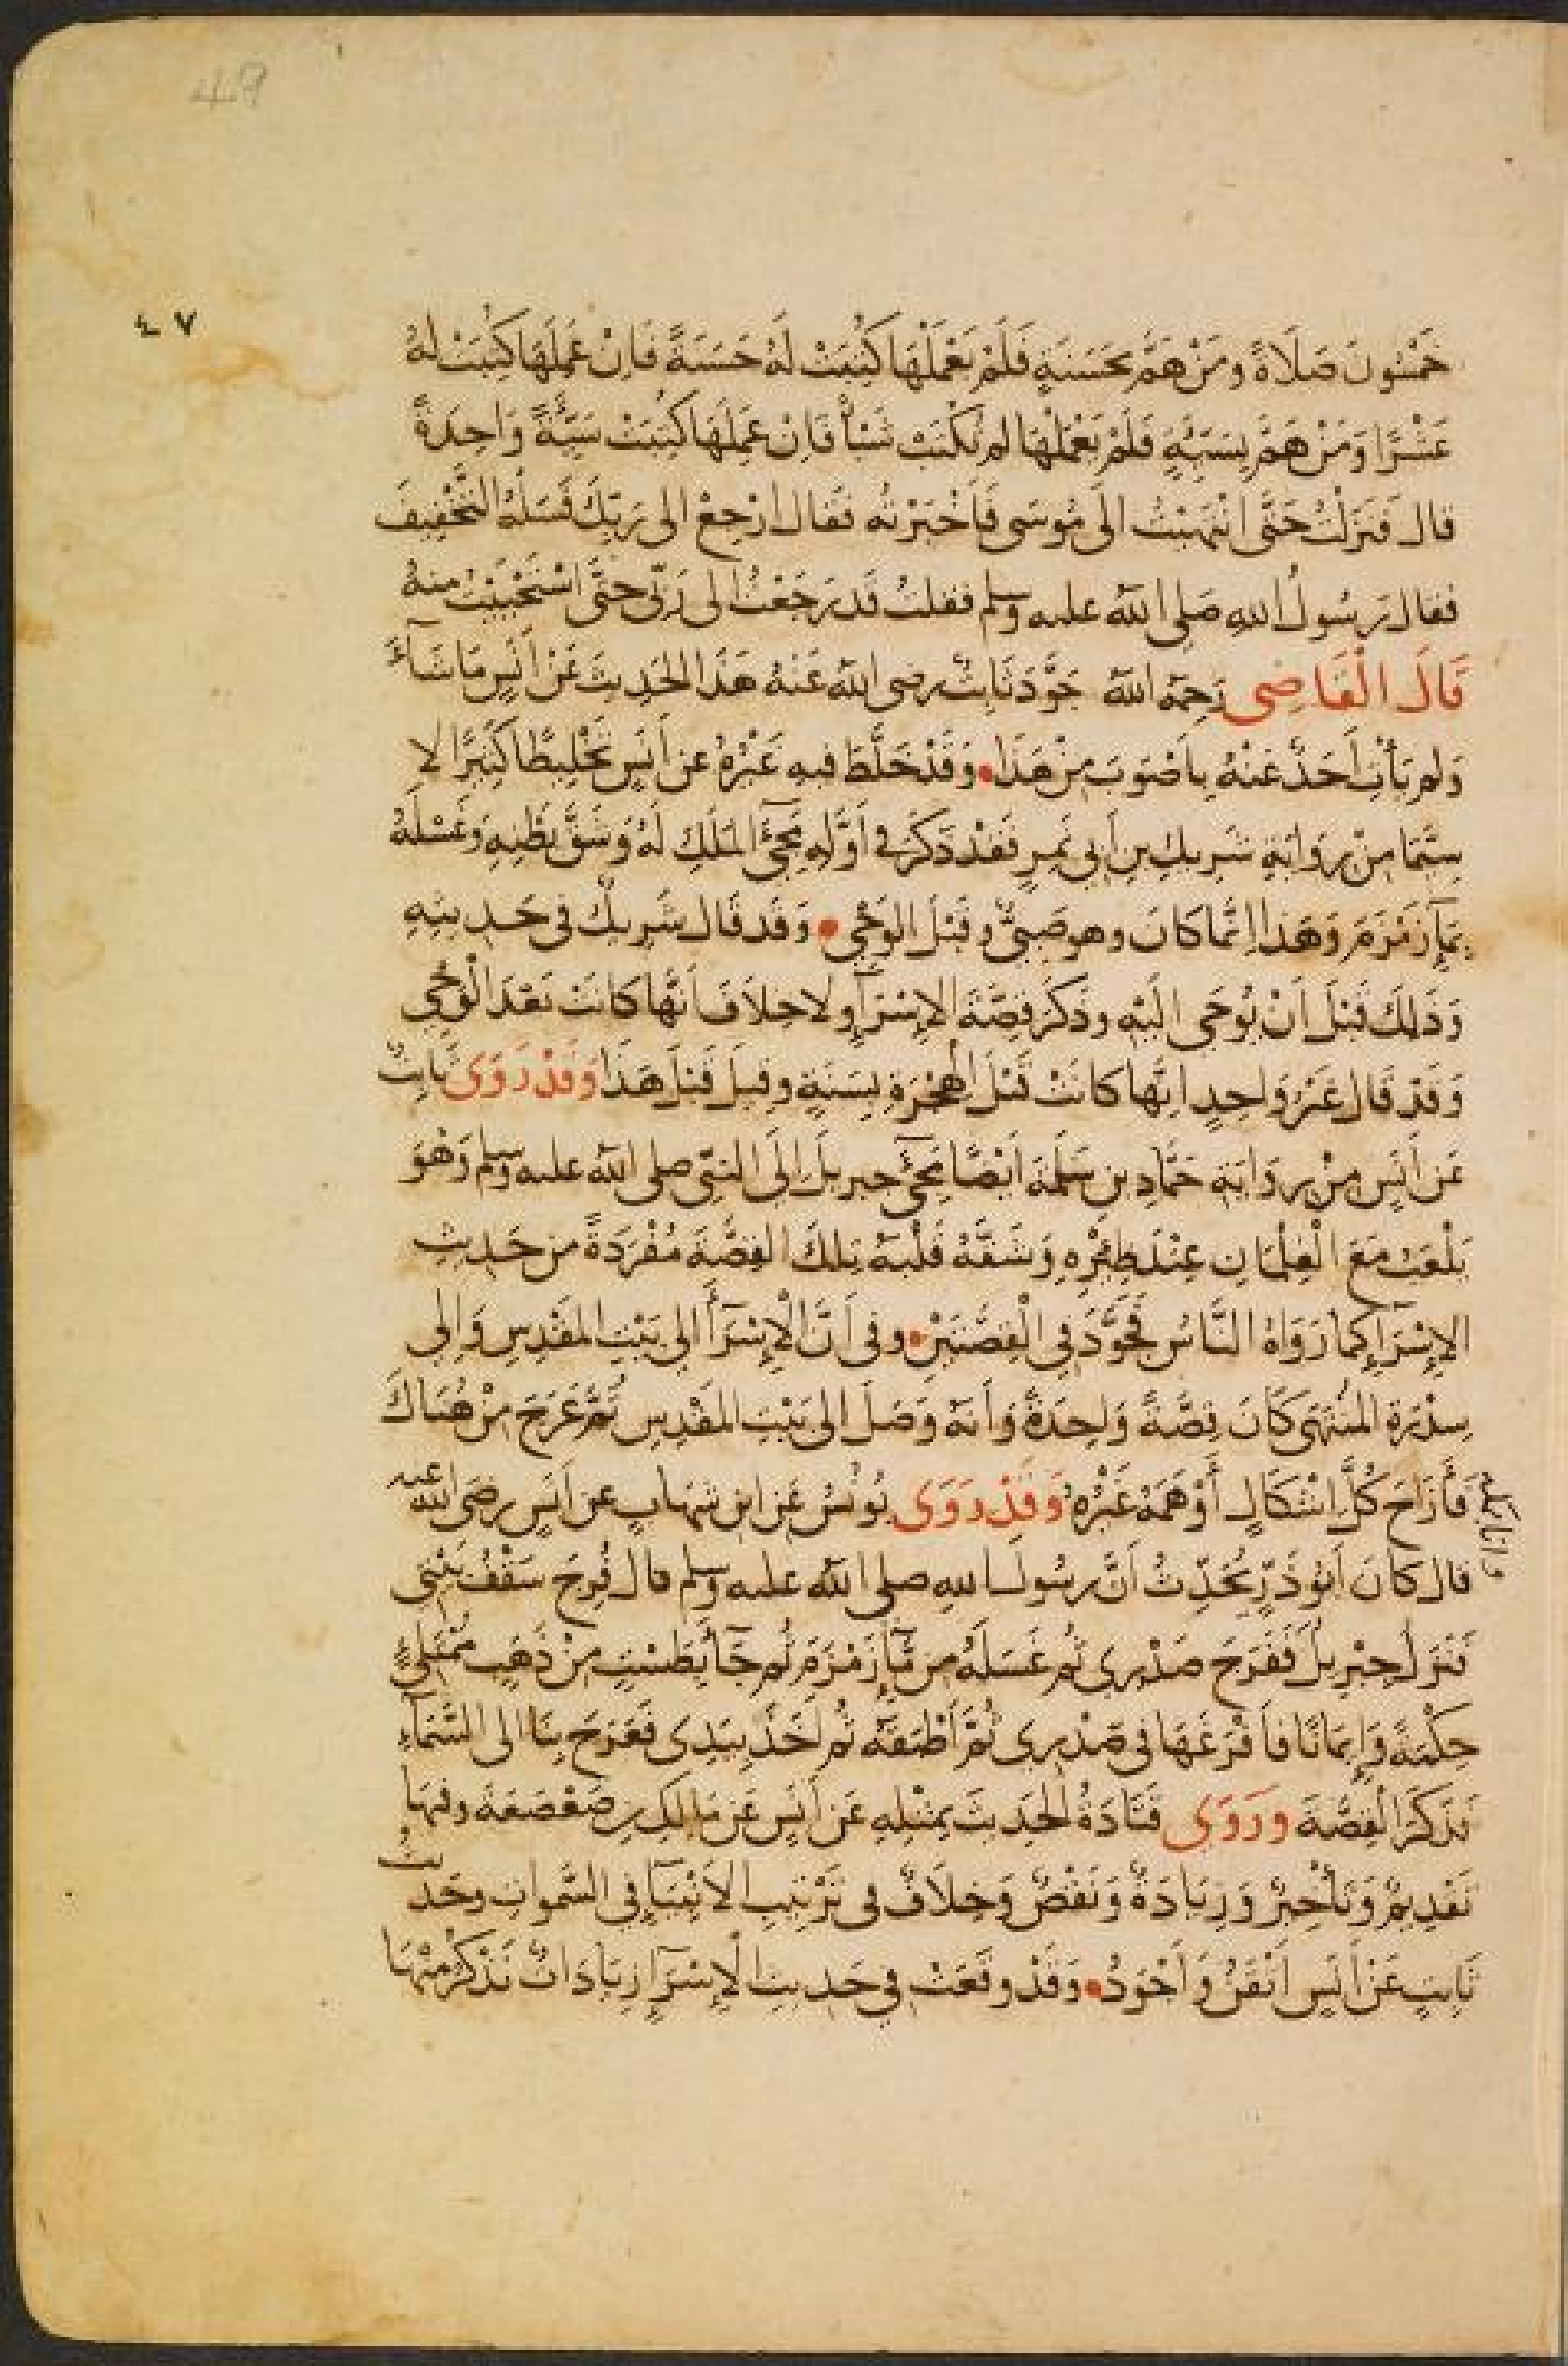 49
٤٧
خَمْسُونَ صَلَاةً وَمَنْ هَمَّ بِحَسَنَةٍ فَلَمْ يَعْمَلْهَا كُتِبَتْ لَهُ حَسَنَةً فَاِنْ عَمِلَهَا كُتِبَتْ لَهُ
عَشْرًا وَمَنْ هَمَّ بِسَيِّئَةٍ فَلَمْ يَعْمَلْهَا لم تُكْتَبْ شَيْأً فَاِنْ عَمِلَهَا كُتِبَتْ سَيِّئَةً وَاحِدَةً
قال فَنَزَلْتُ حَتَّى انْتَهَيْتُ الى مُوسَى فَاَخْبَرْتُه فقال ارْجِعْ الى رَبِّكَ فَسَلْهُ التَّخْفِيفَ
فقال رَسُولُ اللهِ صَلى الله عليه وسلم فقلتُ قَد رَجَعْتُ الى رَبّى حتَّى اسْتَحْيَيْتُ منهُ
قَالَ الْقَاضِى رَحِمَه الله جَوَّدَ ثَابِتٌ رضى الله عَنْهُ هَذَا الحَدِيثَ عَنْ اَنَسٍ مَا شَاءَ
وَلم يَأْتِ اَحَدٌ عَنْهُ بِاَصْوَبَ مِنْ هَذَا • وَقَدْ خَلَّطَ فيهِ غَيْرُهُ عن اَنَسٍ تَخْلِيطًا كَثِيرًا لا
سِيَّمَا مِنْ رِوَايَةِ شَرِيكِ بنِ اَبِى نَمِرٍ فَقَدْ ذَكَرَ فى اَوَّلِهِ مَجِىءَ المَلَكِ لَهُ وَشَقَّ بَطْنِهِ وَغَسْلَهُ
بِمَآءِ زَمْزَمَ وَهَذَا اِنَّمَا كَانَ وهو صَبِىٌّ وقَبْلَ الوَحْىِ • وَقَد قَال شَرِيكٌ فى حَدِيثِهِ
وَذَلِكَ قَبْلَ اَنْ يُوحَى اِلَيْهِ وذَكَرَ قِصَّةَ الاِسْرَآءِ ولا خِلَافَ اَنَّهَا كَانَتْ بَعْدَ الْوَحْىِ
وَقَدْ قَالَ غَيْرُ وَاحِدٍ اِنَّهَا كَانَتْ قَبْلَ الْهِجْرَةِ بِسَنَةٍ وقيلَ قَبْلَ هَذَا وَقَدْ رَوَى ثَابِتٌ
عَن اَنَسٍ مِنْ رِوَايَةِ حَمَّادِ بنِ سَلَمَةَ اَيْضًا مَجِىءَ جبريلَ اِلَى النبِىّ صلى الله عليه وسلم وَهْوَ
يَلْعَبُ مَعَ الْغِلْمَانِ عِنْدَ ظِئْرِهِ وَشَقَّهُ قَلْبَهُ تِلْكَ القِصَّةَ مُفْرَدَةً من حَدِيثِ
الاِسْرَآءِ كما رَوَاهُ النَّاسُ فَجَوَّدَ فى الْقِصَّتَيْنِ • وفى اَنَّ الْاِسْرَآءَ الى بَيْتِ المَقْدِسِ وَاِلى
سِدْرَةِ المُنْتَهَى كَانَ قِصَّةً وَاحِدَةً وَاَنَّهُ وَصَلَ الى بَيْتِ المَقْدِسِ ثُمَّ عَرَجَ مِنْ هُنَاكَ
فَأَزَاحَ كُلَّ اِشْكَالٍ أَوْهَمَهُ غَيْرُهُ وَقَدْ رَوَى يُونُسُ عَنِ ابنِ شِهَابٍ عن اَنَسٍ رضى الله عنه
قال كَانَ اَبُو ذَرٍّ يُحَدِّثُ اَنَّ رسُولَ اللهِ صلى الله عليه وسلم قال فُرِجَ سَقْفُ بَيْتِى
فَنَزَلَ جِبْرِيلُ فَفَرَجَ صَدْرِى ثم غَسَلَهُ من مَآءِ زَمْزَمَ ثم جَآءَ بِطَسْتٍ مِنْ ذَهَبٍ مُمْتَلِئٍ
حِكْمَةً وَاِيمَانًا فَاَفْرَغَهَا فى صَدْرِى ثُمَّ اَطْبَقَهُ ثم اَخَذَ بِيَدِى فَعَرَجَ بِنَا الى السَّمَآءِ
فَذَكَرَ الْقِصَّةَ وَرَوَى قَتَادَةُ الحَدِيثَ بِمِثْلِهِ عَن اَنَسٍ عَن مَالِكِ بنِ صَعْصَعَةَ وفيهَا
تَقْدِيمٌ وَتَأْخِيرٌ وَزِيَادَةٌ وَنَقْصٌ وَخِلَافٌ فى تَرْتِيبِ الاَنْبِيَآءِ فى السَّموَاتِ وحَدِيثُ
ثَابِتٍ عَنْ اَنَسٍ اَتْقَنُ وَاَجْوَدُ • وَقَدْ وقَعَتْ فى حَدِيثِ الْاِسْرَآءِ زِيَادَاتٌ نَذْكُرُ مِنْهَا